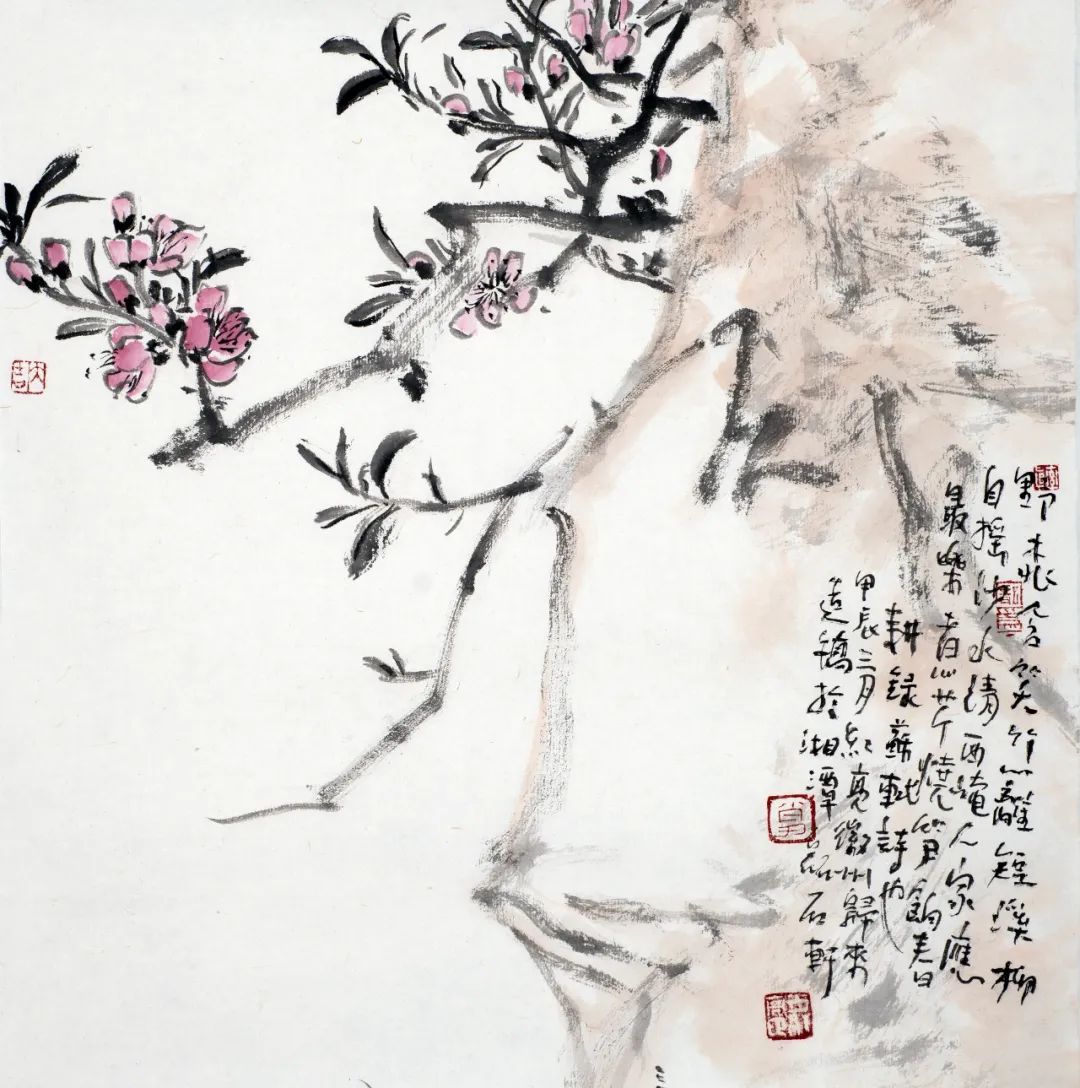 野桃含笑竹籬短溪柳
自搖沙水清西崦人家應
最樂煮芹燒筍餉春
耕錄蘇軾詩也
甲辰三月亮徽州歸來
造稿於湘潭石軒